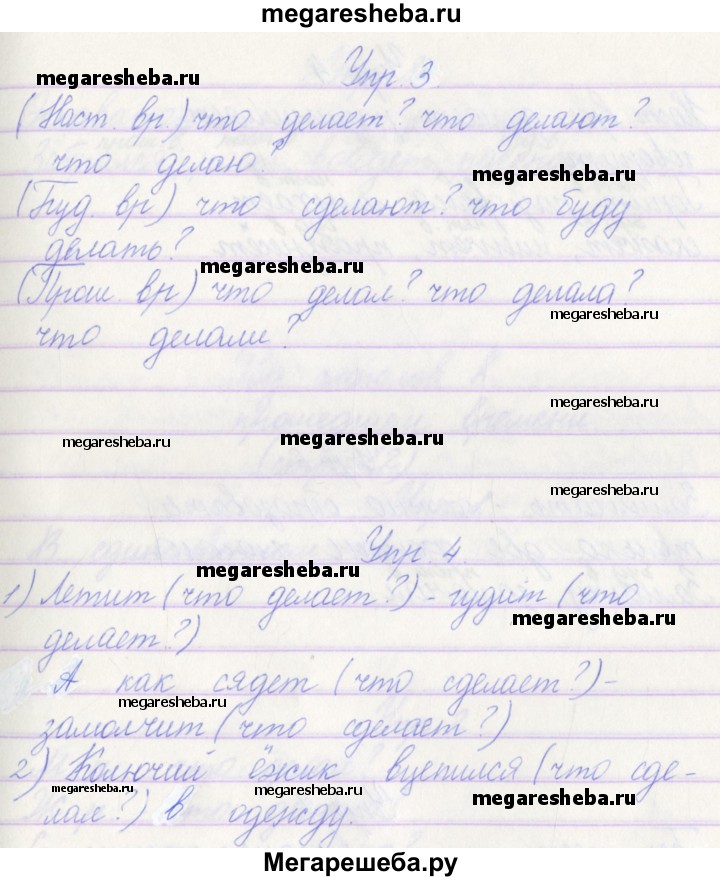 megaresheba.ru
Упр. 3.
megaresheba.ru
(Наст. вр.) что делает? что делают?
что делаю?
megaresheba.ru
(Буд. вр) что сделают? что буду
делать?
megaresheba.ru
(Прош. вр) что делал? что делала?
megaresheba.ru
что делали?
megaresheba.ru
megaresheba.ru
megaresheba.ru
megaresheba.ru
Упр. 4.
megaresheba.ru
1) Летит (что делает?) - гудит (что
megaresheba.ru
делает?)
А как сядет (что сделает?) -
megaresheba.ru
замолчит (что сделает?)
2) Колючий ёжик вцепился (что сде-
megaresheba.ru
megaresheba.ru
лал?) в одежду.
Мегарешеба.ру